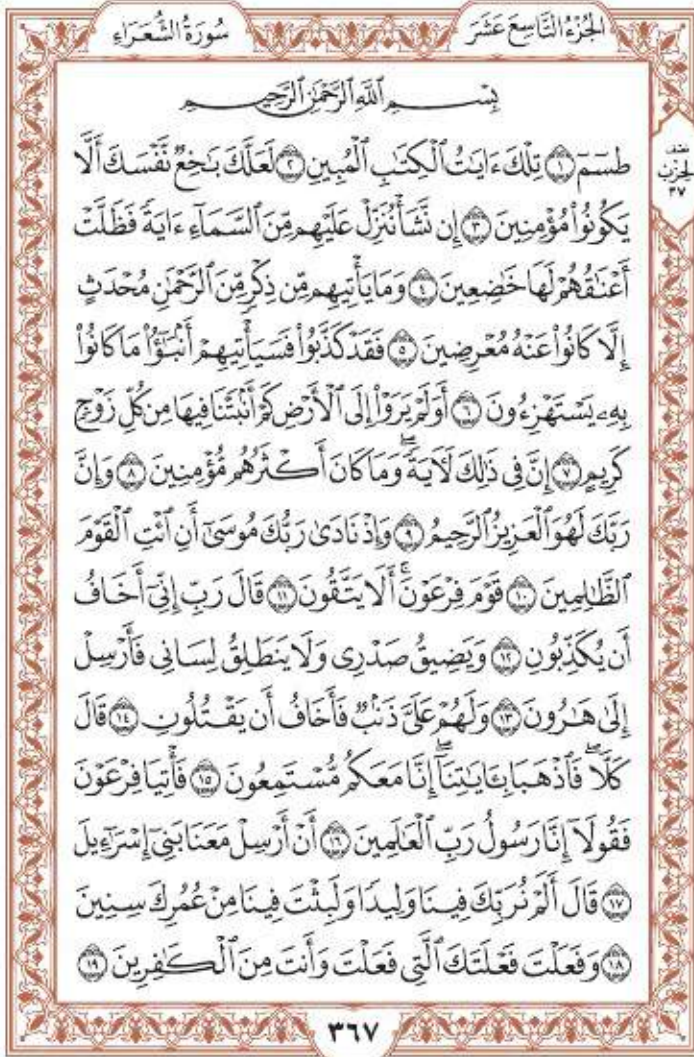 الجُزْءُ التَّاسِعَ عَشَرَ
سُورَةُ الشُّعَرَاءِ
نصف
الحِزْب
٣٧
بِسْمِ ٱللَّهِ ٱلرَّحْمَٰنِ ٱلرَّحِيمِ
طسٓمٓ ١ تِلْكَ ءَايَٰتُ ٱلْكِتَٰبِ ٱلْمُبِينِ ٢ لَعَلَّكَ بَٰخِعٌ نَّفْسَكَ أَلَّا
يَكُونُوا۟ مُؤْمِنِينَ ٣ إِن نَّشَأْ نُنَزِّلْ عَلَيْهِم مِّنَ ٱلسَّمَآءِ ءَايَةً فَظَلَّتْ
أَعْنَٰقُهُمْ لَهَا خَٰضِعِينَ ٤ وَمَا يَأْتِيهِم مِّن ذِكْرٍ مِّنَ ٱلرَّحْمَٰنِ مُحْدَثٍ
إِلَّا كَانُوا۟ عَنْهُ مُعْرِضِينَ ٥ فَقَدْ كَذَّبُوا۟ فَسَيَأْتِيهِمْ أَنۢبَٰٓؤُا۟ مَا كَانُوا۟
بِهِۦ يَسْتَهْزِءُونَ ٦ أَوَلَمْ يَرَوْا۟ إِلَى ٱلْأَرْضِ كَمْ أَنۢبَتْنَا فِيهَا مِن كُلِّ زَوْجٍ
كَرِيمٍ ٧ إِنَّ فِى ذَٰلِكَ لَءَايَةً ۖ وَمَا كَانَ أَكْثَرُهُم مُّؤْمِنِينَ ٨ وَإِنَّ
رَبَّكَ لَهُوَ ٱلْعَزِيزُ ٱلرَّحِيمُ ٩ وَإِذْ نَادَىٰ رَبُّكَ مُوسَىٰٓ أَنِ ٱئْتِ ٱلْقَوْمَ
ٱلظَّٰلِمِينَ ١٠ قَوْمَ فِرْعَوْنَ ۚ أَلَا يَتَّقُونَ ١١ قَالَ رَبِّ إِنِّىٓ أَخَافُ
أَن يُكَذِّبُونِ ١٢ وَيَضِيقُ صَدْرِى وَلَا يَنطَلِقُ لِسَانِى فَأَرْسِلْ
إِلَىٰ هَٰرُونَ ١٣ وَلَهُمْ عَلَىَّ ذَنۢبٌ فَأَخَافُ أَن يَقْتُلُونِ ١٤ قَالَ
كَلَّا ۖ فَٱذْهَبَا بِـَٔايَٰتِنَآ ۖ إِنَّا مَعَكُم مُّسْتَمِعُونَ ١٥ فَأْتِيَا فِرْعَوْنَ
فَقُولَآ إِنَّا رَسُولُ رَبِّ ٱلْعَٰلَمِينَ ١٦ أَنْ أَرْسِلْ مَعَنَا بَنِىٓ إِسْرَٰٓءِيلَ
١٧ قَالَ أَلَمْ نُرَبِّكَ فِينَا وَلِيدًا وَلَبِثْتَ فِينَا مِنْ عُمُرِكَ سِنِينَ
١٨ وَفَعَلْتَ فَعْلَتَكَ ٱلَّتِى فَعَلْتَ وَأَنتَ مِنَ ٱلْكَٰفِرِينَ ١٩
٣٦٧